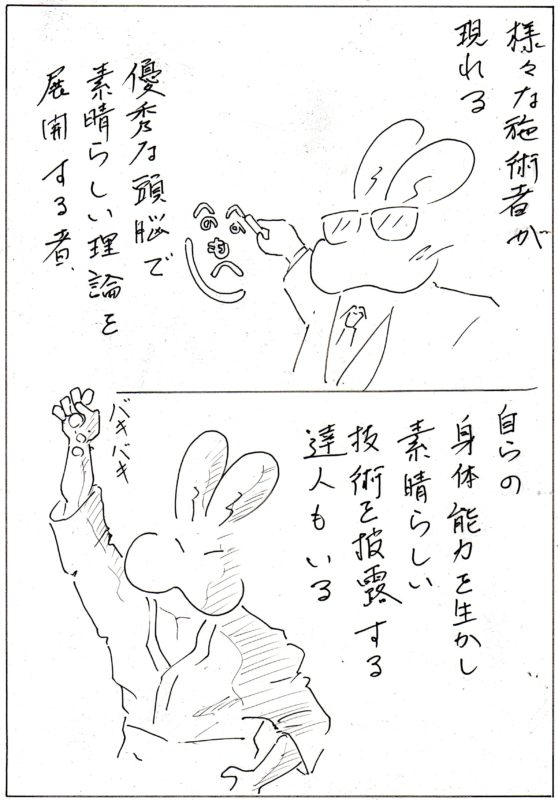 様々な施術者が
現れる
優秀な頭脳で
素晴らしい理論を
展開する者、
へのへの
も
へ
し
自らの
身体能力を生かし
素晴らしい
技術を披露する
達人もいる
バキバキ